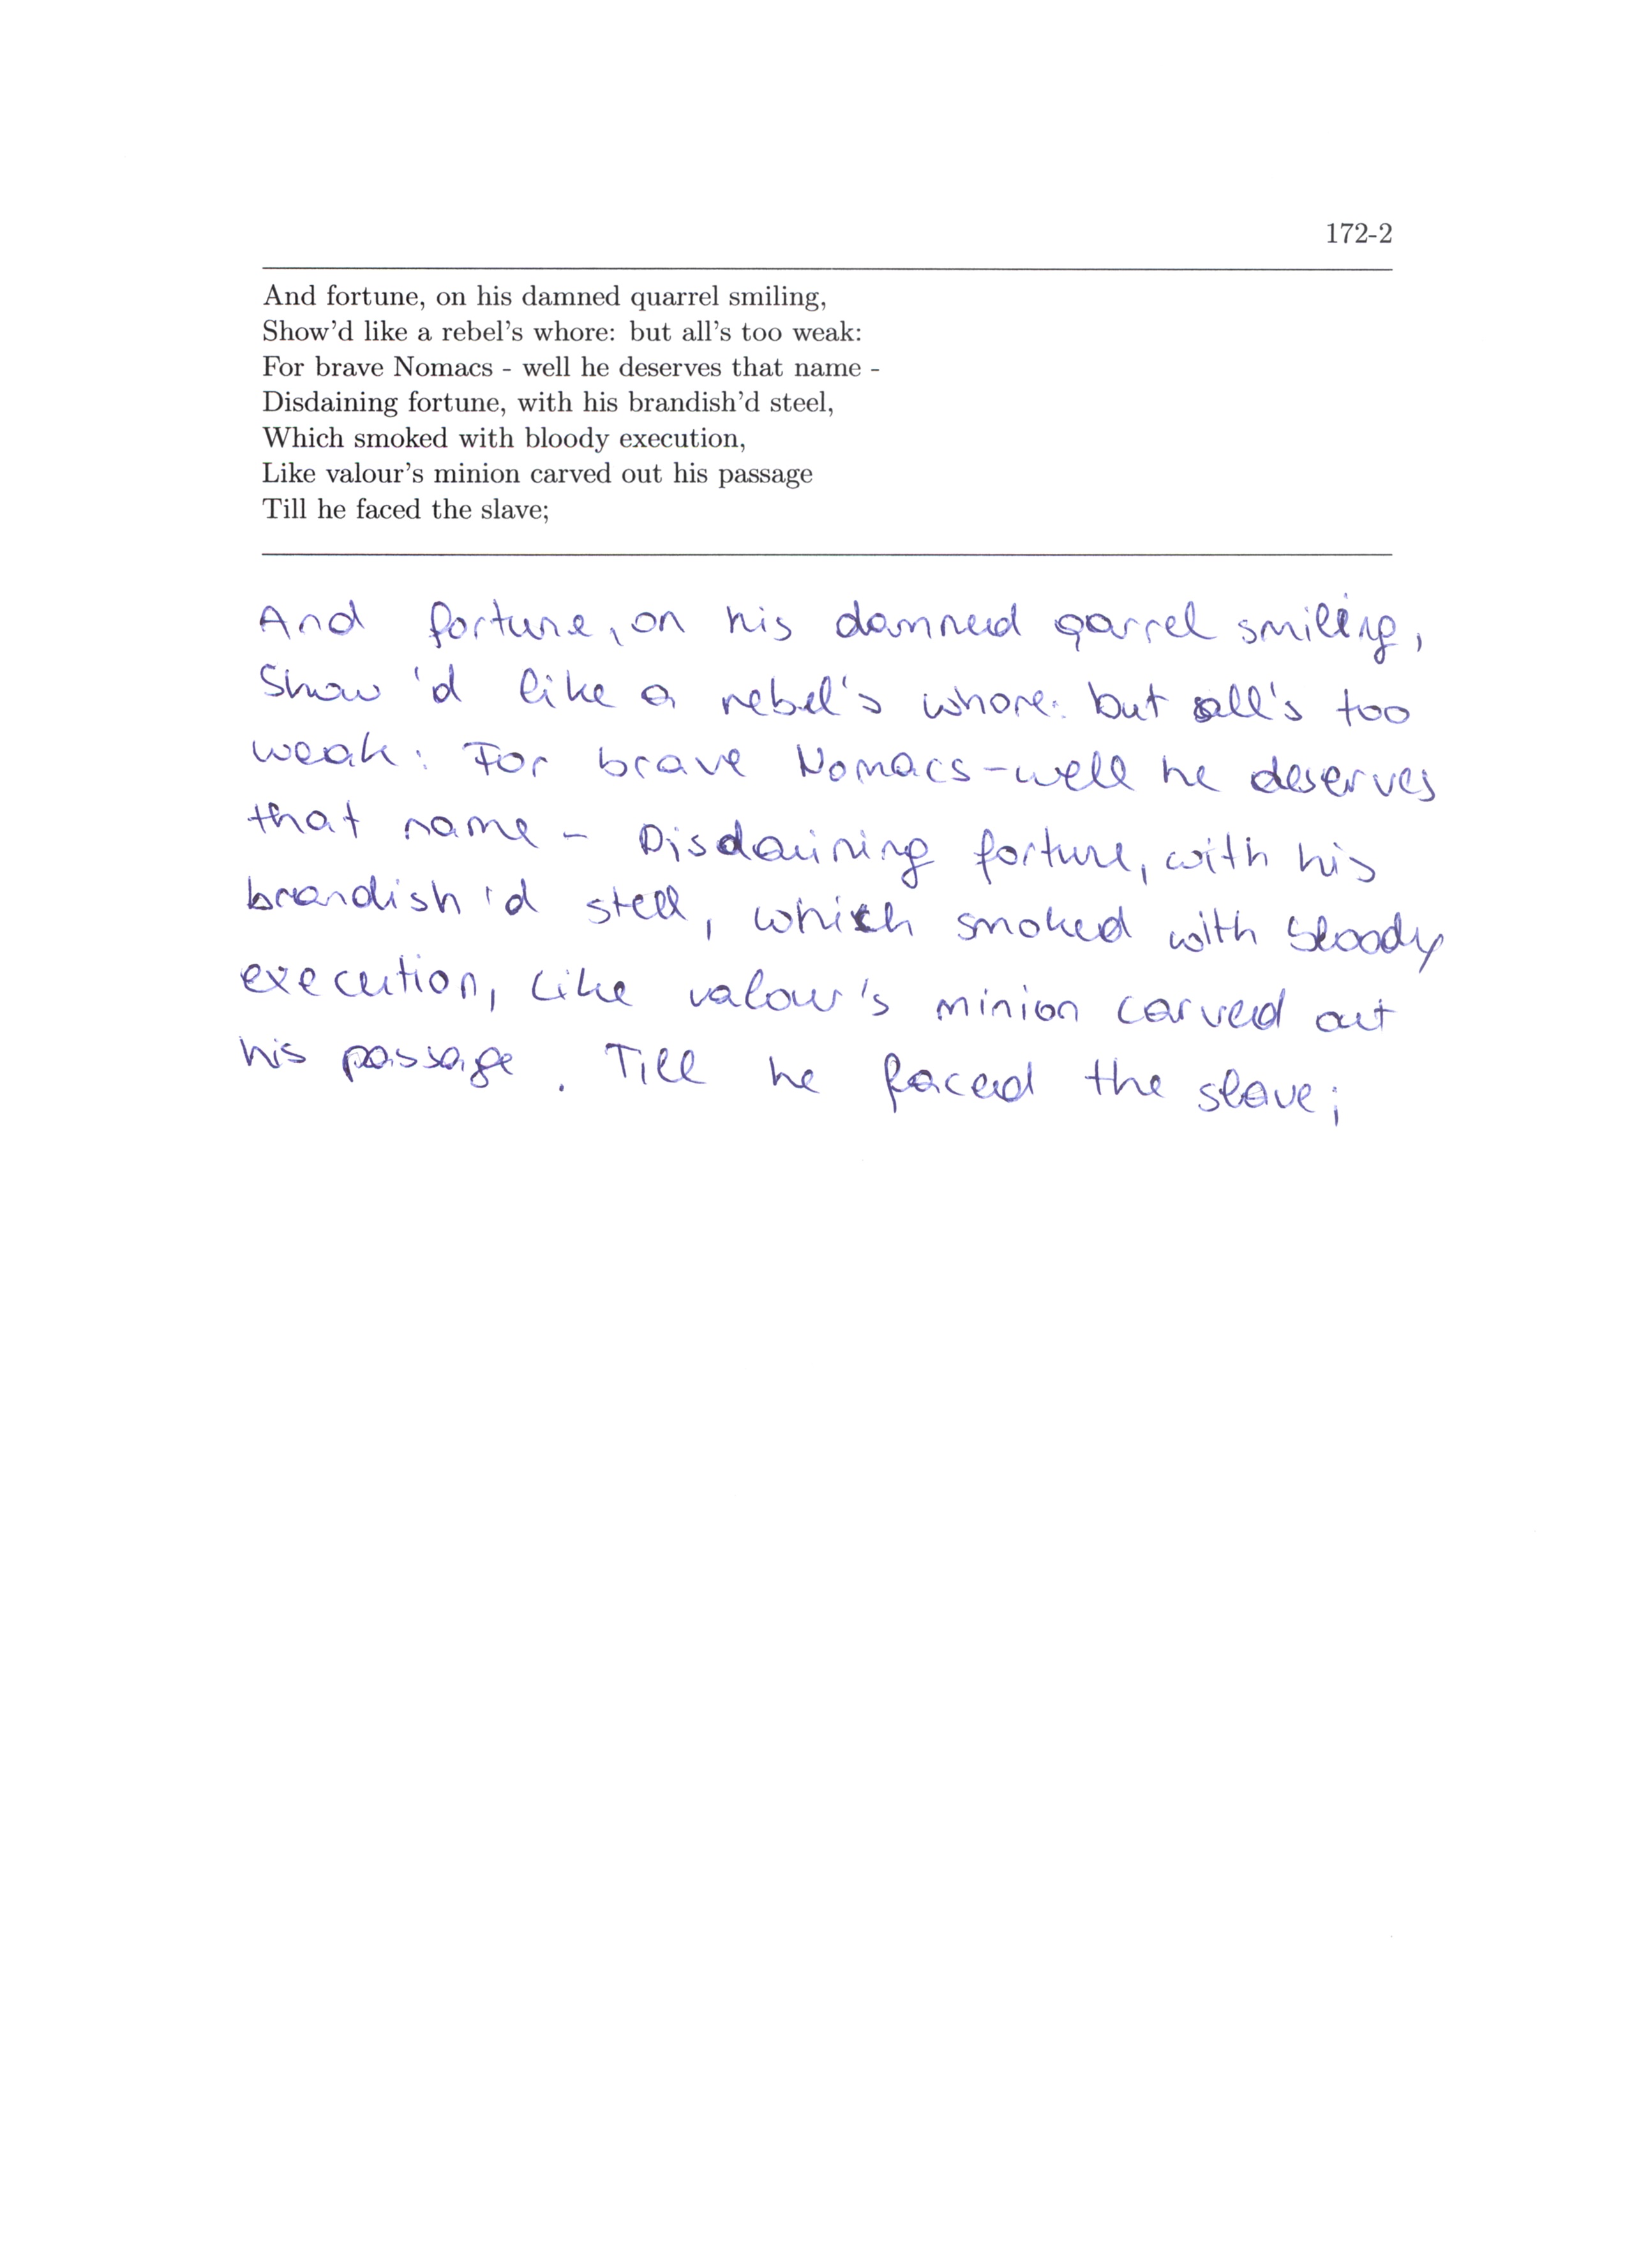 172-2
And fortune, on his damned quarrel smiling,
Show'd like a rebel's whore: but all's too weak:
For brave Nomacs - well he deserves that name -
Disdaining fortune, with his brandish'd steel,
Which smoked with bloody execution,
Like valour's minion carved out his passage
Till he faced the slave;
And fortune, on his damned qarrel smiling,
Show 'd like a rebel's whore: but all's too
weak: For brave Nomacs - well he deserves
that name - Disdaining fortune, with his
brandish 'd steel, which smoked with bloody
execution, Like valour's minion carved out
his passage. Till he faced the slave;